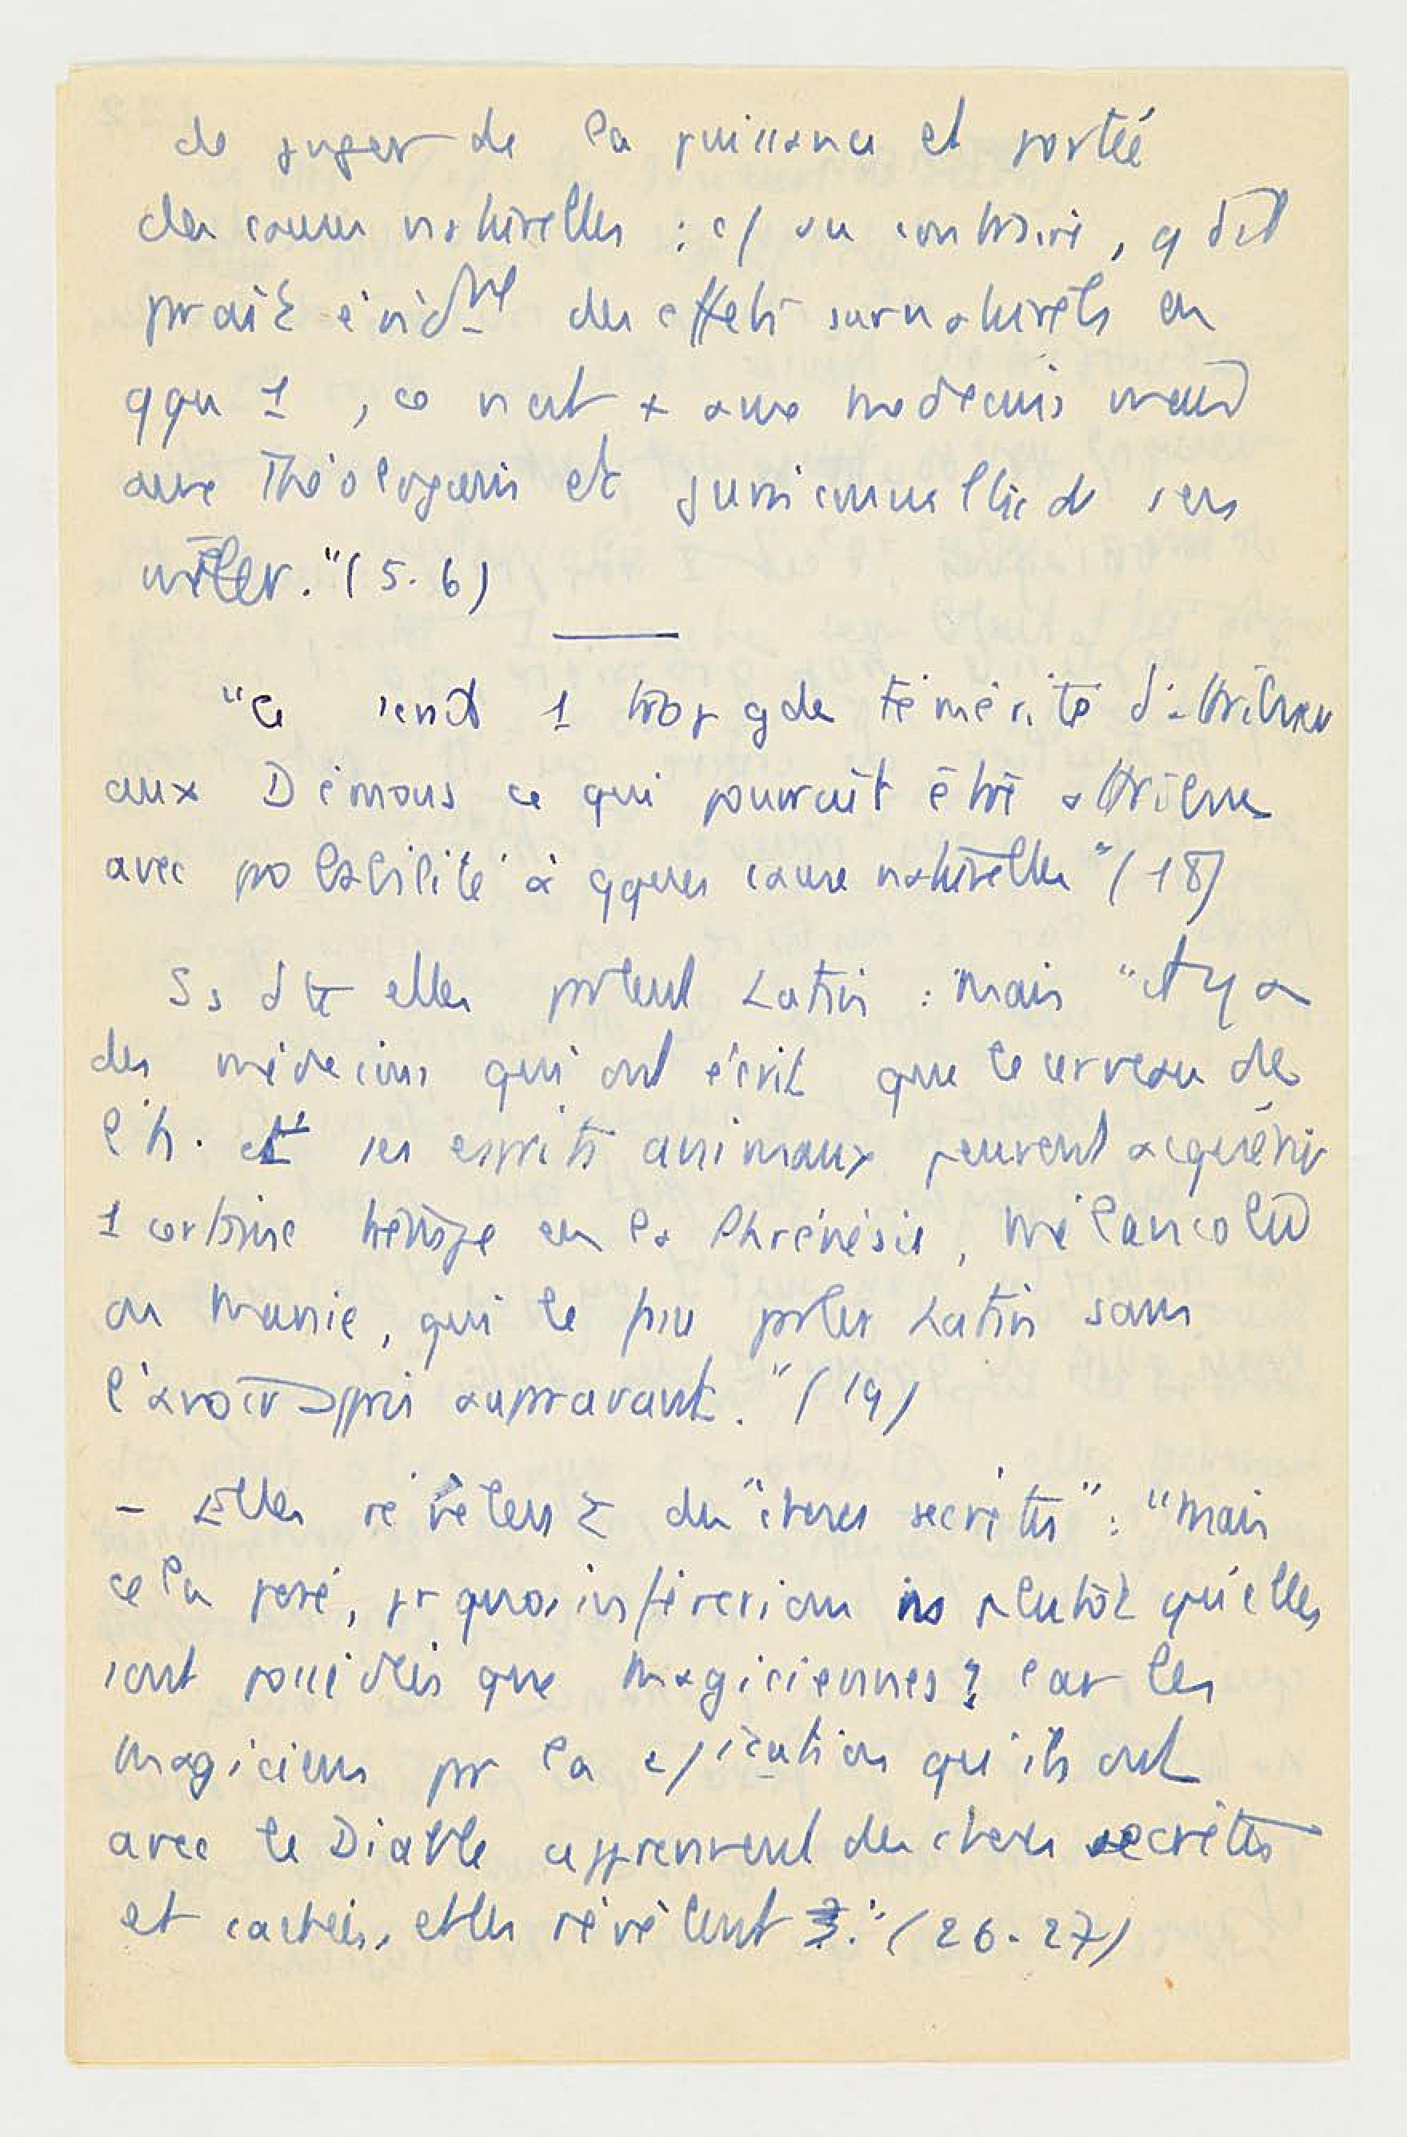 de juger de la puissance et portée
des causes naturelles : c/ au contraire, qd il
praît évidmt des effets surnaturels en
qqu 1, ce n'est + aux medecins mais
aux Théologiens et Jurisconsultes de s'en
mêler." (5.6)
"Ce serait 1 trop gde témérité d'attribuer
aux Démons ce qui pourrait être attribué
avec probabilité à qques cause naturelles" (18)
elles prlent Latin : mais "il y a
des médecins qui ont écrit que le cerveau de
l'h. et ses esprits animaux peuvent acquérir
1 certaine trempe en la Phrénésie, mélancolie
ou Manie, qui le fra prler Latin sans
l'avoir appris aupravant." (19)
- Elles révèlent des "choses secrètes" : "Mais
cela posé, pr quoi inférerions ns plutôt qu'elles
sont possédées que Magiciennes? car les
magiciens pr la qu'ils ont
avec le Diable apprennent des choses secrètes
et cachées, et les révèlent." (26-27)